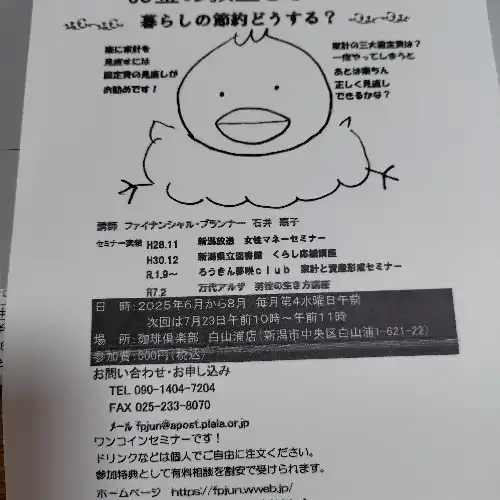 暮らしの節約どうする？
楽に家計を
見直すには
固定費の見直しが
お勧めです！
家計の三大固定費は？
一度やってしまうと
あとは楽ちん
正しく見直し
できるかな？
講師 ファイナンシャル・プランナー 石井 恵子
セミナー実績 H28.11 新潟放送 女性マネーセミナー
H30.12 新潟県立図書館 くらし応援講座
R.1.9～ ろうきん夢咲ｃｌｕｂ 家計と資産形成セミナー
R7.2 万代アルザ 男性の生き方講座
日 時：2025年6月から8月 毎月第4水曜日午前
次回は7月23日午前10時～午前11時
場 所：珈琲倶楽部 白山浦店(新潟市中央区白山浦1-621-22)
参加費：500円(税込)
お問い合わせ・お申し込み
TEL 090-1404-7204
FAX 025-233-8070
メール fpjun@apost.plala.or.jp
ワンコインセミナーです！
ドリンクなどは個人でご自由に注文ください。
参加特典として有料相談を割安で受けられます。
ホームページ https://fpjun.wweb.jp/